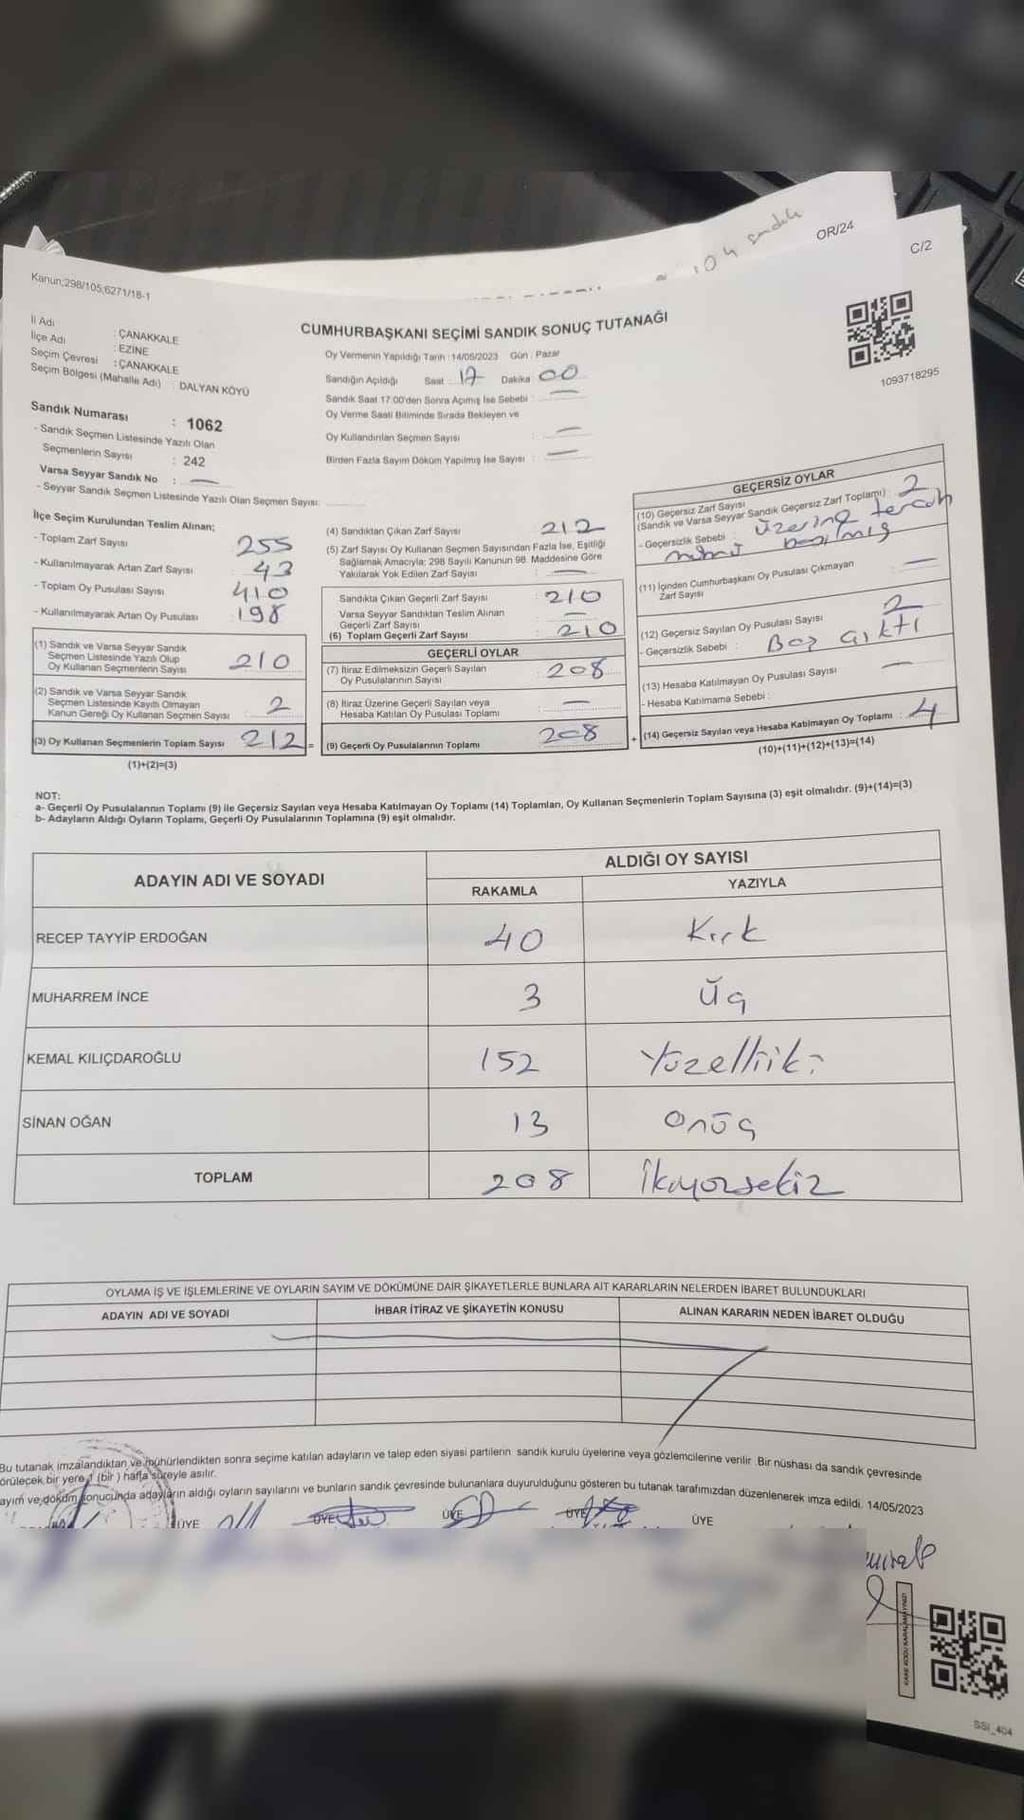 104 sandık
OR/24
C/2
Kanun;298/105;6271/18-1
İl Adı : ÇANAKKALE
İlçe Adı : EZİNE
Seçim Çevresi : ÇANAKKALE
Seçim Bölgesi (Mahalle Adı) : DALYAN KÖYÜ
Sandık Numarası : 1062
- Sandık Seçmen Listesinde Yazılı Olan
Seçmenlerin Sayısı : 242
Varsa Seyyar Sandık No : —
- Seyyar Sandık Seçmen Listesinde Yazılı Olan Seçmen Sayısı:
CUMHURBAŞKANI SEÇİMİ SANDIK SONUÇ TUTANAĞI
Oy Vermenin Yapıldığı Tarih : 14/05/2023 Gün : Pazar
Sandığın Açıldığı Saat : 17 Dakika 00
Sandık Saat 17:00'den Sonra Açımış İse Sebebi : —
Oy Verme Saati Bitiminde Sırada Bekleyen ve
Oy Kullandırılan Seçmen Sayısı : —
Birden Fazla Sayım Döküm Yapılmış İse Sayısı : —
1093718295
İlçe Seçim Kurulundan Teslim Alınan;
- Toplam Zarf Sayısı 255
- Kullanılmayarak Artan Zarf Sayısı : 43
- Toplam Oy Pusulası Sayısı : 410
- Kullanılmayarak Artan Oy Pusulası : 198
(1) Sandık ve Varsa Seyyar Sandık
Seçmen Listesinde Yazılı Olup
Oy Kullanan Seçmenlerin Sayısı 210
(2) Sandık ve Varsa Seyyar Sandık
Seçmen Listesinde Kayıtlı Olmayan
Kanun Gereği Oy Kullanan Seçmen Sayısı 2
(3) Oy Kullanan Seçmenlerin Toplam Sayısı 212 =
(1)+(2)=(3)
(4) Sandıktan Çıkan Zarf Sayısı 212
(5) Zarf Sayısı Oy Kullanan Seçmen Sayısından Fazla İse, Eşitliği
Sağlamak Amacıyla; 298 Sayılı Kanunun 98. Maddesine Göre
Yakılarak Yok Edilen Zarf Sayısı : —
Sandıkta Çıkan Geçerli Zarf Sayısı : 210
Varsa Seyyar Sandıktan Teslim Alınan
Geçerli Zarf Sayısı : —
(6) Toplam Geçerli Zarf Sayısı : 210
GEÇERLİ OYLAR
(7) İtiraz Edilmeksizin Geçerli Sayılan
Oy Pusulalarının Sayısı : 208
(8) İtiraz Üzerine Geçerli Sayılan veya
Hesaba Katılan Oy Pusulası Toplamı : —
(9) Geçerli Oy Pusulalarının Toplamı 208 +
GEÇERSİZ OYLAR
(10) Geçersiz Zarf Sayısı
(Sandık ve Varsa Seyyar Sandık Geçersiz Zarf Toplamı) 2
- Geçersizlik Sebebi : üzerine tercih
mührü basılmış
(11) İçinden Cumhurbaşkanı Oy Pusulası Çıkmayan
Zarf Sayısı : —
(12) Geçersiz Sayılan Oy Pusulası Sayısı 2
- Geçersizlik Sebebi : Boş çıktı
(13) Hesaba Katılmayan Oy Pusulası Sayısı —
- Hesaba Katılmama Sebebi :
(14) Geçersiz Sayılan veya Hesaba Katılmayan Oy Toplamı : 4
(10)+(11)+(12)+(13)=(14)
NOT:
a- Geçerli Oy Pusulalarının Toplamı (9) ile Geçersiz Sayılan veya Hesaba Katılmayan Oy Toplamı (14) Toplamları, Oy Kullanan Seçmenlerin Toplam Sayısına (3) eşit olmalıdır. (9)+(14)=(3)
b- Adayların Aldığı Oyların Toplamı, Geçerli Oy Pusulalarının Toplamına (9) eşit olmalıdır.
ADAYIN ADI VE SOYADI
ALDIĞI OY SAYISI
RAKAMLA YAZIYLA
RECEP TAYYİP ERDOĞAN 40 Kırk
MUHARREM İNCE 3 Üç
KEMAL KILIÇDAROĞLU 152 Yüzelliiki
SİNAN OĞAN 13 Onüç
TOPLAM 208 İkiyüzsekiz
OYLAMA İŞ VE İŞLEMLERİNE VE OYLARIN SAYIM VE DÖKÜMÜNE DAİR ŞİKAYETLERLE BUNLARA AİT KARARLARIN NELERDEN İBARET BULUNDUKLARI
ADAYIN ADI VE SOYADI İHBAR İTİRAZ VE ŞİKAYETİN KONUSU ALINAN KARARIN NEDEN İBARET OLDUĞU
Bu tutanak imzalandıktan ve mühürlendikten sonra seçime katılan adayların ve talep eden siyasi partilerin sandık kurulu üyelerine veya gözlemcilerine verilir .Bir nüshası da sandık çevresinde
örülecek bir yere 1 (bir ) hafta süreyle asılır.
ayım ve döküm sonucunda adayların aldığı oyların sayılarını ve bunların sandık çevresinde bulunanlara duyurulduğunu gösteren bu tutanak tarafımızdan düzenlenerek imza edildi. 14/05/2023
ÜYE ÜYE ÜYE ÜYE ÜYE
KARE KODU KARALAMAYINIZ!
SSI_404